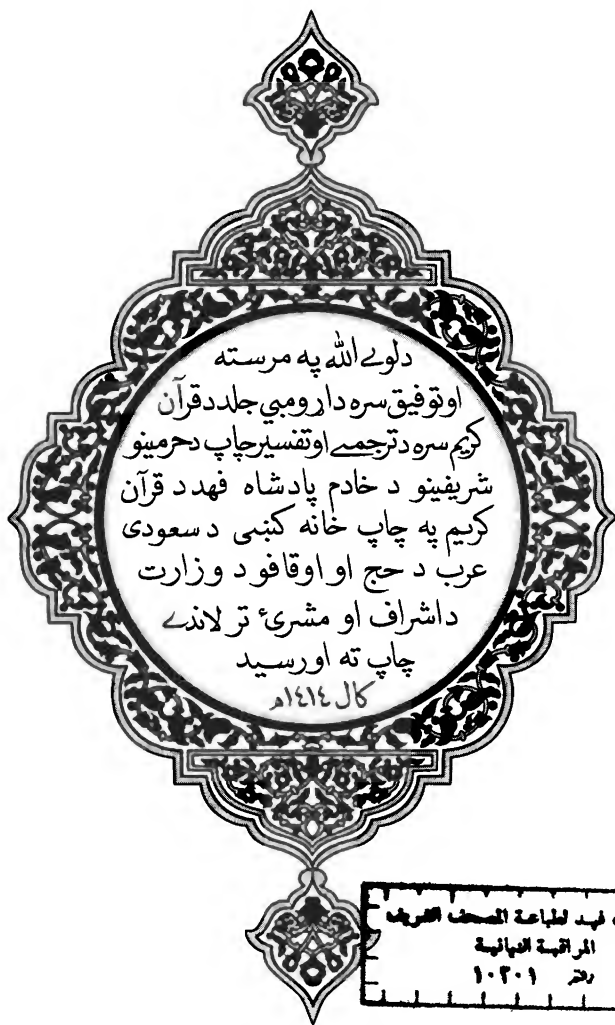 دلوے الله په مرسته
اوتوفیق سره دا ړومبي جلد د قرآن
کریم سره د ترجمے او تفسیر چاپ د حرمینو
شریفینو د خادم پادشاه فهد د قرآن
کریم په چاپ خانه کښی د سعودی
عرب د حج او اوقافو د وزارت
د اشراف او مشریٔ تر لاندے
چاپ ته اورسید
کال ١٤١٤ﻫ
فهد لطباعة المصحف الشريف
المراقبة النهائية
١٠٢٠١